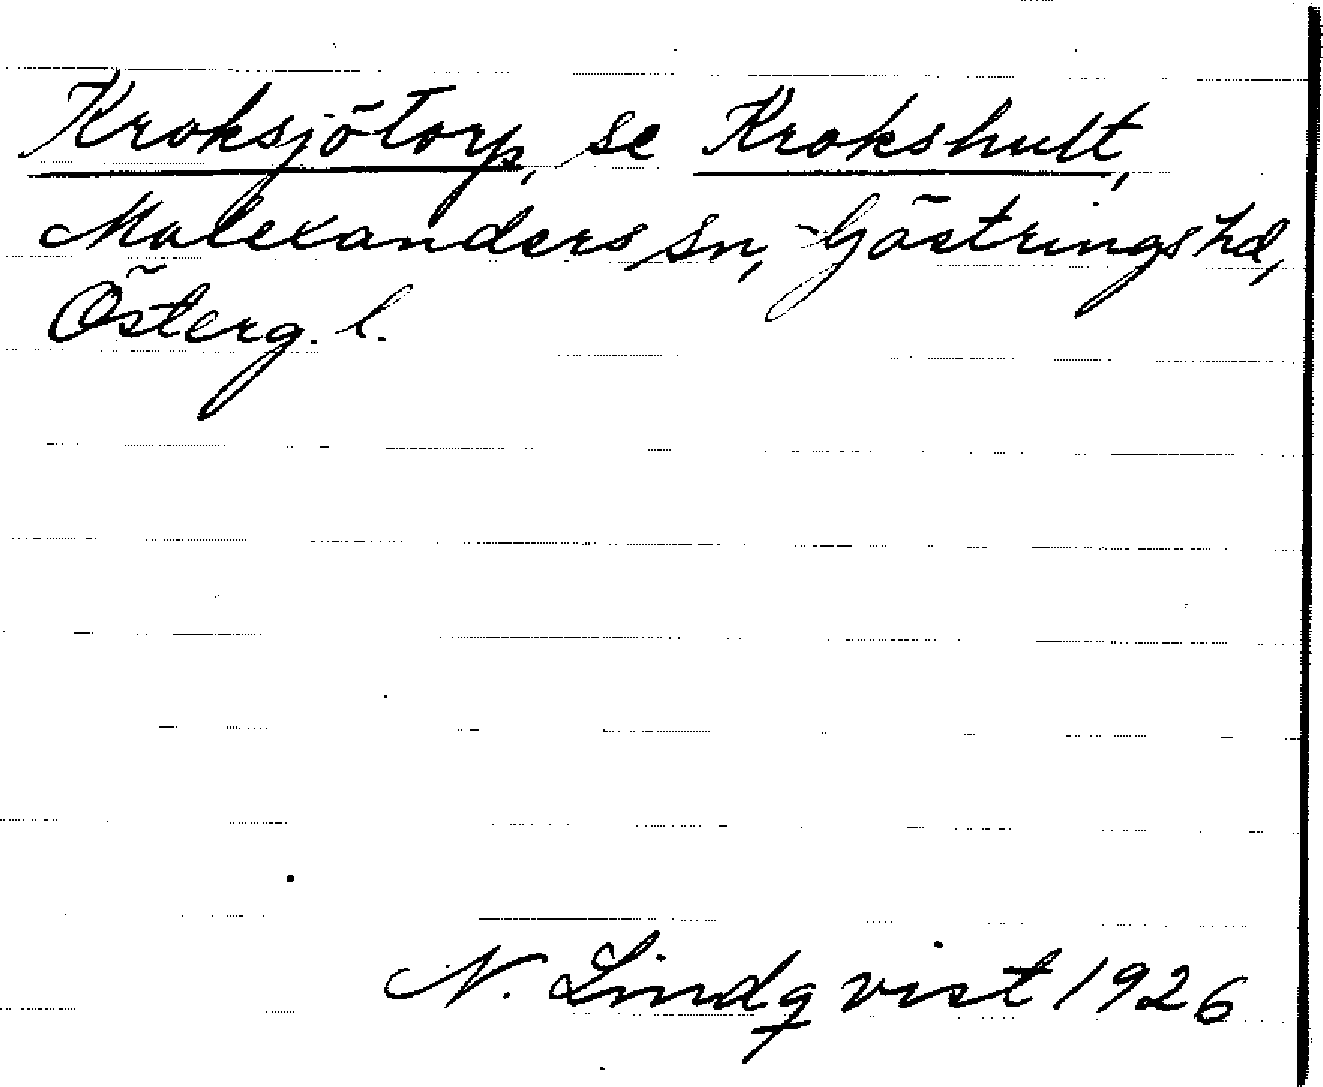 Kroksjötorp, se Krokshult,
Malexanders sn, Göstrings hd,
Österg. l.
N. Lindqvist 1926